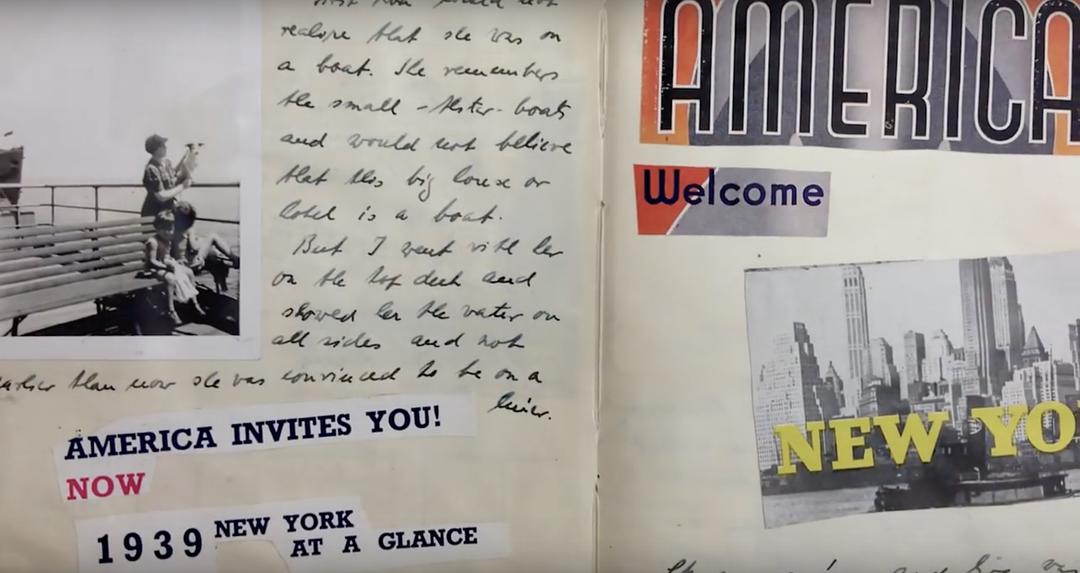 would not
realise that she was on
a boat. She remembers
the small -Alster- boats
and would not believe
that this big house or
hotel is a boat.
But I went with her
on the top deck and
showed her the water on
all sides and not
earlier than now she was convinced to be on a
liner.
AMERICA INVITES YOU!
NOW
1939 NEW YORK
AT A GLANCE
AMERICA
Welcome
NEW YO
and